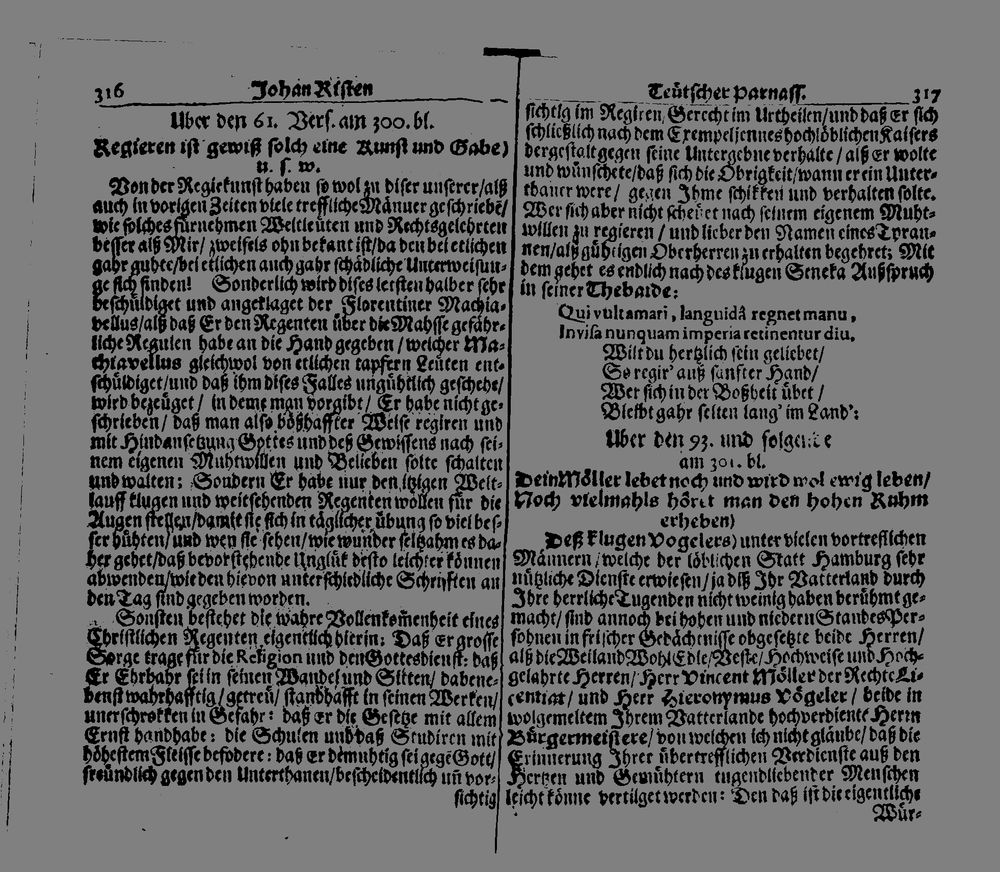 316 Johan Risten
Uber den 61. Vers. am 300. bl.
Regieren ist gewiß solch eine Kunst und Gabe)
u. s. w.
Von der Regiekunst haben so wol zu diser unserer/alß
auch in vorigen Zeiten viele treffliche Männer geschriebē/
wie solches fürnehmen Weltleüten und Rechtsgelehrten
besser alß Mir/ zweifels ohn bekant ist/da den bei etlichen
gahr guhte/bei etlichen auch gahr schädliche Unterweisun-
ge sich finden! Sonderlich wird dises letsten halber sehr
beschüldiget und angeklaget der Florentiner Machia-
vellus/alß daß Er den Regenten über die Mahsse gefähr-
liche Regulen habe an die Hand gegeben/ welcher Ma-
chiavellus gleichwol von etlichen tapfern Leüten ent-
schüldiget/und daß ihm dises Falles ungühtlich geschehe/
wird bezeüget/ in deme man vorgibt/ Er habe nicht ge-
schrieben/ daß man also bößhaffter Weise regiren und
mit Hindansetzung Gottes und deß Gewissens nach sei-
nem eigenen Muhtwillen und Belieben solte schalten
und walten; Sondern Er habe nur den itzigen Welt-
lauff klugen und weitsehenden Regenten wollen für die
Augen stellen/damit sie sich in täglicher übung so viel bes-
ser hühten/und wen sie sehen/wie wunder seltzahm es da-
her gehet/daß bevorstehende Unglük desto leichter können
abwenden/wie den hievon unterschiedliche Schriften an
den Tag sind gegeben worden.
Sonsten bestehet die wahre Vollenkom̄enheit eines
Christlichen Regenten eigentlich hierin: Daß Er grosse
Sorge trage für die Religion und den Gottesdienst: daß
Er Ehrbahr sei in seinen Wandel und Sitten/ dabene-
benst wahrhafftig/getreü/ standhafft in seinen Werken/
unerschrokken in Gefahr: daß Er die Gesetze mit allem
Ernst handhabe: die Schulen und daß Studiren mit
höhestem Fleisse befodere: daß Er demühtig sei gegē Gott/
freündlich gegen den Unterthanen/bescheidentlich uñ vor-
sichtig
Teütscher Parnass. 317
sichtig im Regiren/ Gerecht im Urtheilen/und daß Er sich
schließlich nach dem Exempel jennes hochlöblichen Kaisers
dergestalt gegen seine Untergebne verhalte/ alß Er wolte
und wünschete/daß sich die Obrigkeit/wann er ein Unter-
thaner were/ gegen Ihme schikken und verhalten solte.
Wer sich aber nicht scheüet nach seinem eigenem Muht-
willen zu regieren/ und lieber den Namen eines Tyran-
nen/alß gühtigen Oberherren zu erhalten begehret; Mit
dem gehet es endlich nach des klugen Seneka Außspruch
in seiner Thebaide:
Qui vult amari, languidâ regnet manu,
Invisa nunquam imperia retinentur diu.
Wilt du hertzlich sein geliebet/
So regir' auß sanfter Hand/
Wer sich in der Boßheit übet/
Bleibt gahr selten lang' im Land':
Uber den 93. und folgende
am 301. bl.
Dein Möller lebet noch und wird wol ewig leben/
Noch vielmahls höret man den hohen Ruhm
erheben)
Deß klugen Vogelers) unter vielen vortreflichen
Männern/ welche der löblichen Statt Hamburg sehr
nützliche Dienste erwiesen/ ja diß Ihr Vatterland durch
Ihre herrliche Tugenden nicht weinig haben berühmt ge-
macht/ sind annoch bei hohen und niedern Standes Per-
sohnen in frischer Gedächtnisse obgesetzte beide Herren/
alß die Weiland Wohl Edle/Veste/ Hochweise und Hoch-
gelahrte Herren/ Herr Vincent Möller der Rechte Li-
centiat/ und Herr Hieronymus Vögeler/ beide in
wolgemeltem Ihrem Vatterlande hochverdiente Herrn
Bürgermeistere/ von welchen ich nicht gläube/ daß die
Erinnerung Ihrer übertrefflichen Verdienste auß den
Hertzen und Gemühtern tugendliebender Menschen
leicht könne vertilget werden: Den daß ist die eigentliche
Wür-